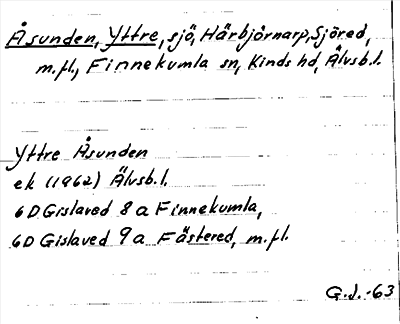 Åsunden, Yttre, sjö, Härbjörnarp, Sjöred,
m.fl., Finnekumla sn, Kinds hd, Älvsb.l.
Yttre Åsunden
ek (1962) Älvsb.l.
6D Gislaved 8a Finnekumla,
6D Gislaved 9a Fästered, m.fl.
G.J.-63